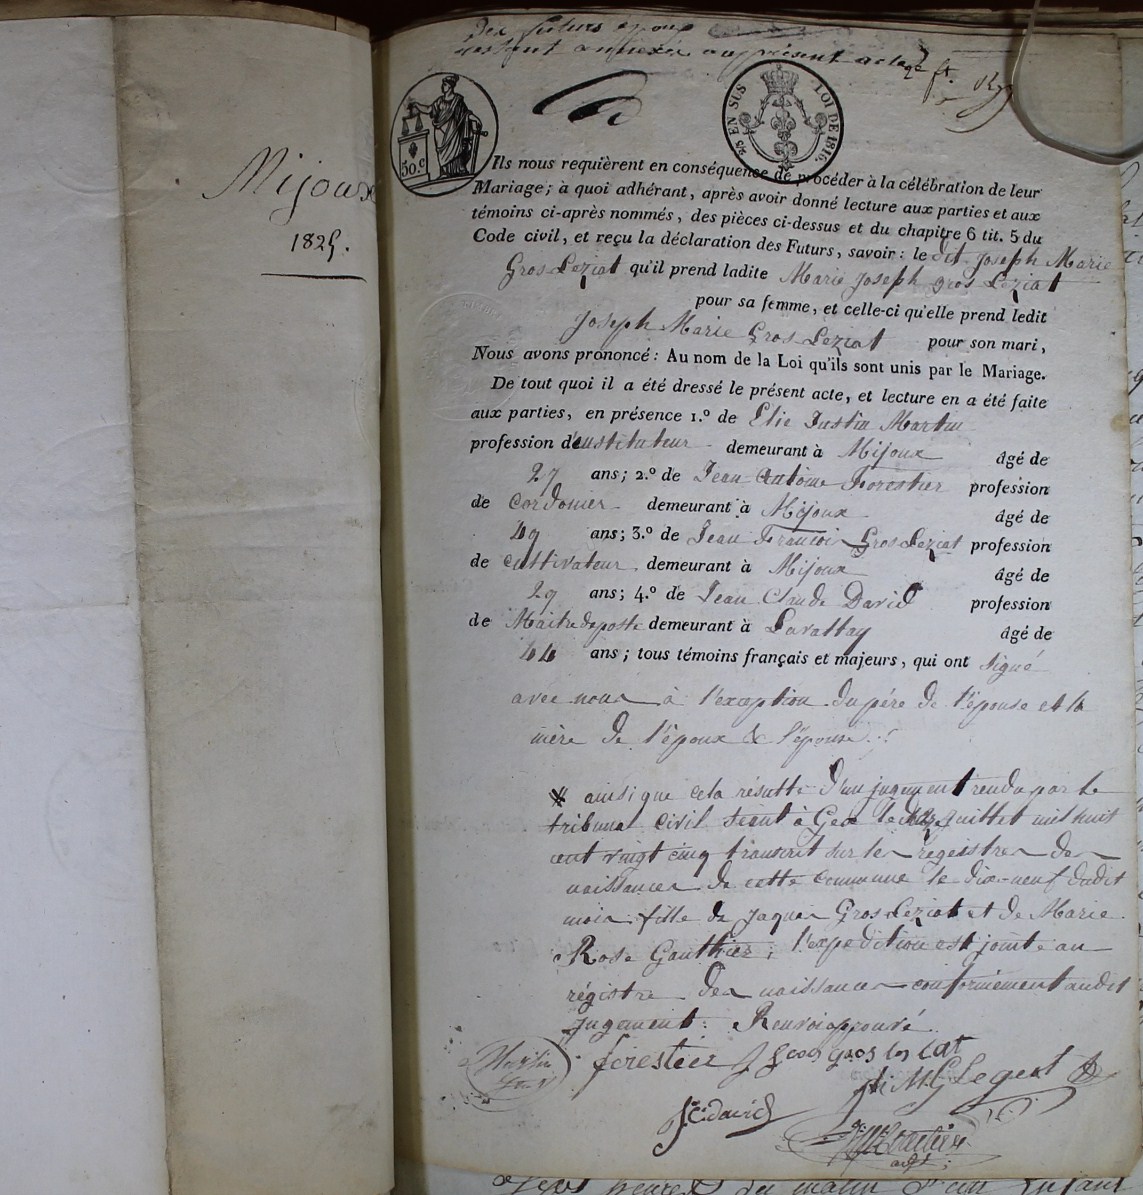 Mijoux
1825.
des futurs époux
restant annexées au présent acte
50.c
25 EN SUS LOI DE 1816.
Ils nous requièrent en conséquence de procéder à la célébration de leur
Mariage; à quoi adhérant, après avoir donné lecture aux parties et aux
témoins ci-après nommés, des pièces ci-dessus et du chapitre 6 tit. 5 du
Code civil, et reçu la déclaration des Futurs, savoir: le dit Joseph Marie
Gros Leziat qu'il prend ladite Marie Joseph gros Leziat
pour sa femme, et celle-ci qu'elle prend ledit
Joseph Marie Gros Leziat pour son mari,
Nous avons prononcé: Au nom de la Loi qu'ils sont unis par le Mariage.
De tout quoi il a été dressé le présent acte, et lecture en a été faite
aux parties, en présence 1.º de Elie Justin Martin
profession d'instituteur demeurant à Mijoux âgé de
27 ans; 2.º de Jean Antoine Forestier profession
de cordonier demeurant à Mijoux âgé de
49 ans; 3.º de Jean Francois Gros Leziat profession
de cultivateur demeurant à Mijoux âgé de
29 ans; 4.º de Jean Claude David profession
de Maitre de poste demeurant à Lavattay âgé de
44 ans; tous témoins français et majeurs, qui ont signé
avec nous à l'exception du père de l'épouse et la
mère de l'époux & l'épouse.
ainsi que cela résulte d'un jugement rendu par le
tribunal civil séant à Gex le juillet mil huit
cent vingt cinq transcrit sur les registres des
naissances de cette commune le dix-neuf dudit
mois, fille de Jaques Gros Leziat et de Marie
Rose Gauthier; l'expedition est jointe au
régistre des naissances conformément audit
jugement. Renvoi approuvé.
Martin
forestier J fcois gros les lat
J. C. david
sept heures du matin